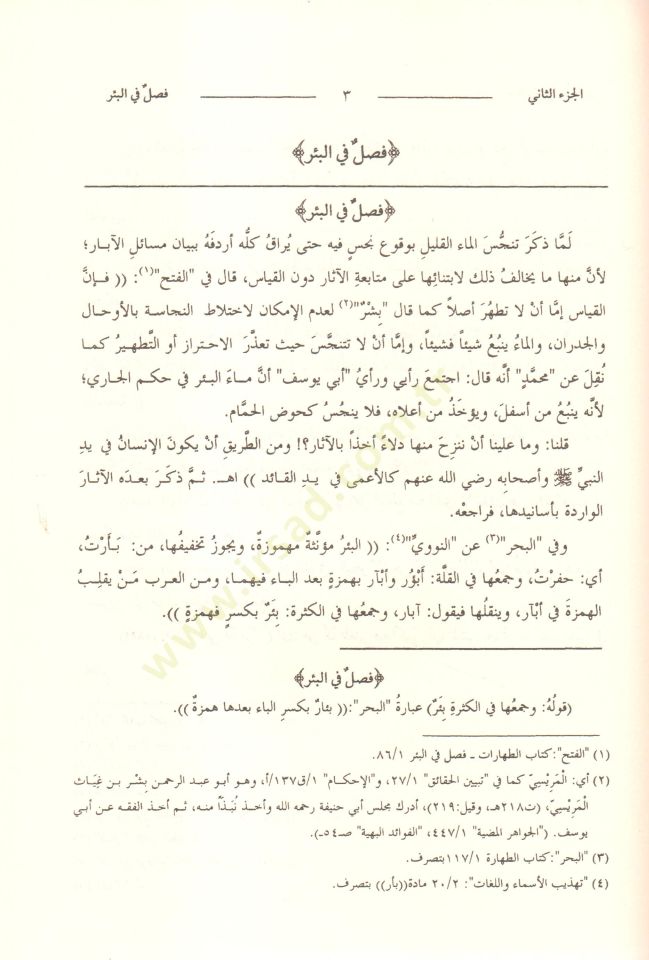 الجزء الثاني ٣ فصلٌ في البئر
﴿فصلٌ في البئر﴾
﴿فصلٌ في البئر﴾
لَمَّا ذكَرَ تنجُّسَ الماء القليلِ بوقوع نجسٍ فيه حتى يُراقُ كلُّه أردفَهُ ببيان مسائلِ الآبار؛
لأنَّ منها ما يخالفُ ذلك لابتنائِها على متابعةِ الآثار دون القياس، قال في "الفتح"(١): (( فـإنَّ
القياس إمَّا أنْ لا تطهُرَ أصلاً كما قال "بِشْرٌ"(٢) لعدمِ الإمكان لاختلاطِ النجاسة بالأوحال
والجدران، والماءُ ينبُعُ شيئاً فشيئاً، وإمَّا أنْ لا تتنجَّسَ حيث تعذَّرَ الاحتراز أو التَّطهيرُ كمـا
نُقِلَ عن "محمَّدٍ" أنَّه قال: اجتمعَ رأيي ورأيُ "أبي يوسف" أنَّ مـاءَ البـئر في حكـمِ الجاري؛
لأنَّه ينبُعُ من أسفلَ، ويؤخَذُ من أعلاه، فلا ينجُسُ كحوض الحمَّام.
قلنا: وما علينا أنْ ننزِحَ منها دلاءً أخذاً بالآثار؟! ومن الطَّريقِ أنْ يكونَ الإنسانُ في يدِ
النبيِّ ﷺ وأصحابِه رضي الله عنهم كالأعمى في يدِ القائد )) اهـ. ثـمَّ ذكَـرَ بعـدَه الآثـارَ
الواردة بأسانيدها، فراجعْه.
وفي "البحر"(٣) عن "النوويِّ"(٤): (( البئرُ مؤنَّثةٌ مهموزةٌ، ويجوزُ تخفيفُها، من: بَـأَرْتُ،
أي: حفرْتُ، وجمعُها في القلَّة: أَبْؤُر وأبْآر بهمزةٍ بعد البـاء فيهمـا، ومـن العرب مَـنْ يقلِـبُ
الهمزةَ في أبْآر، وينقلُها فيقول: آبار، وجمعُها في الكثرة: بِئَرٌ بكسرٍ فهمزةٍ )).
﴿فصلٌ في البئر﴾
(قولُهُ: وجمعُها في الكثرةِ بِئَرٌ) عبارةُ "البحر":(( بئارٌ بكسرِ الباء بعدها همزةٌ )).
(١) "الفتح":كتاب الطهارات - فصل في البئر ٨٦/١.
(٢) أي: الْمَرِيْسِيّ كما في "تبيين الحقائق" ٢٧/١، و"الإحكام" ١/ق١٣٧/أ، وهـو أبـو عبـد الرحمـن بِشْر بـن غِيَاث
الْمَرِيْسِيّ، (ت٢١٨هـ، وقيل:٢١٩)، أدرك مجلس أبي حنيفة رحمه الله وأخـذ نُبَـذاً منـه، ثـم أخـذ الفقـه عن أبـي
يوسف. ("الجواهر المضية" ٤٤٧/١، "الفوائد البهية" صـ٥٤ـ).
(٣) "البحر":كتاب الطهارة ١١٧/١بتصرف.
(٤) "تهذيب الأسماء واللغات": ٢٠/٢ مادة((بأر)) بتصرف.
www.irsad.com.tr